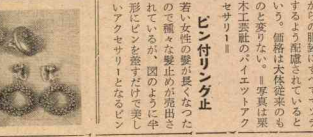 するよう配慮されていると
いう。価格は大体従来のも
のと変りない。＝写真は栗
木工芸社のパイエットアク
セサリー＝
ピン付リング止
若い女性の髪が長くなつた
ので種々な髪止めが売出さ
れているが、図のように半
形にピンを差すだけで美し
いアクセサリーとなるピン